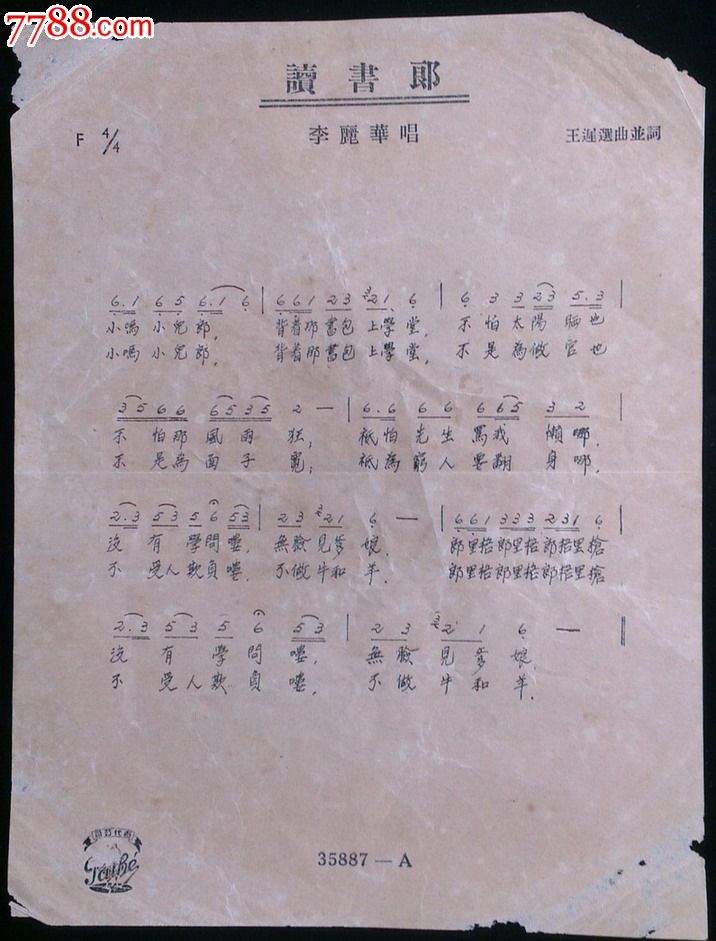 7788.com
讀書郎
李麗華唱
F 4/4
王遲選曲並詞
6.1 6 5 6.1 6 | 6 6 1 2 3 2 1 6 | 6 3 3 2 3 5.3 |
小嗎小兒郎, 背着那書包上學堂, 不怕太陽晒也
小嗎小兒郎, 背着那書包上學堂, 不是為做官也
3 5 6 6 6 5 3 5 2 — | 6.6 6 6 6 6 5 3 2 |
不怕那風雨狂; 祇怕先生罵我懶哪,
不是為面子寬; 祇為窮人要翻身哪,
2.3 5 3 5 6 5 3 | 2 3 2 1 6 — | 6 6 1 3 3 3 2 3 1 6 |
沒有學問嘍, 無臉見爹娘. 郎里格郎里格郎格里搶
不受人欺負嘍, 不做牛和羊. 郎里格郎里格郎格里搶
2.3 5 3 5 6 5 3 | 2 3 2 1 6 — ‖
沒有學問嘍, 無臉見爹娘.
不受人欺負嘍, 不做牛和羊.
Pathé
35887 — A